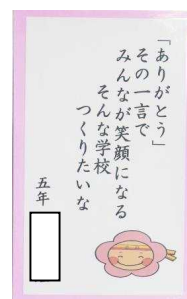 「ありがとう」
その一言で
みんなが笑顔になる
そんな学校
つくりたいな
五年